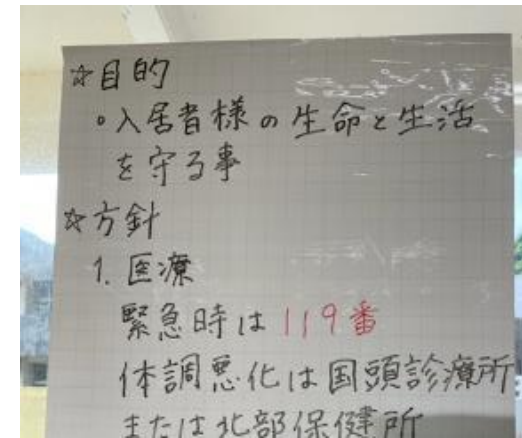 ☆目的
◦入居者様の生命と生活
を守る事
☆方針
1. 医療
緊急時は119番
体調悪化は国頭診療所
または北部保健所